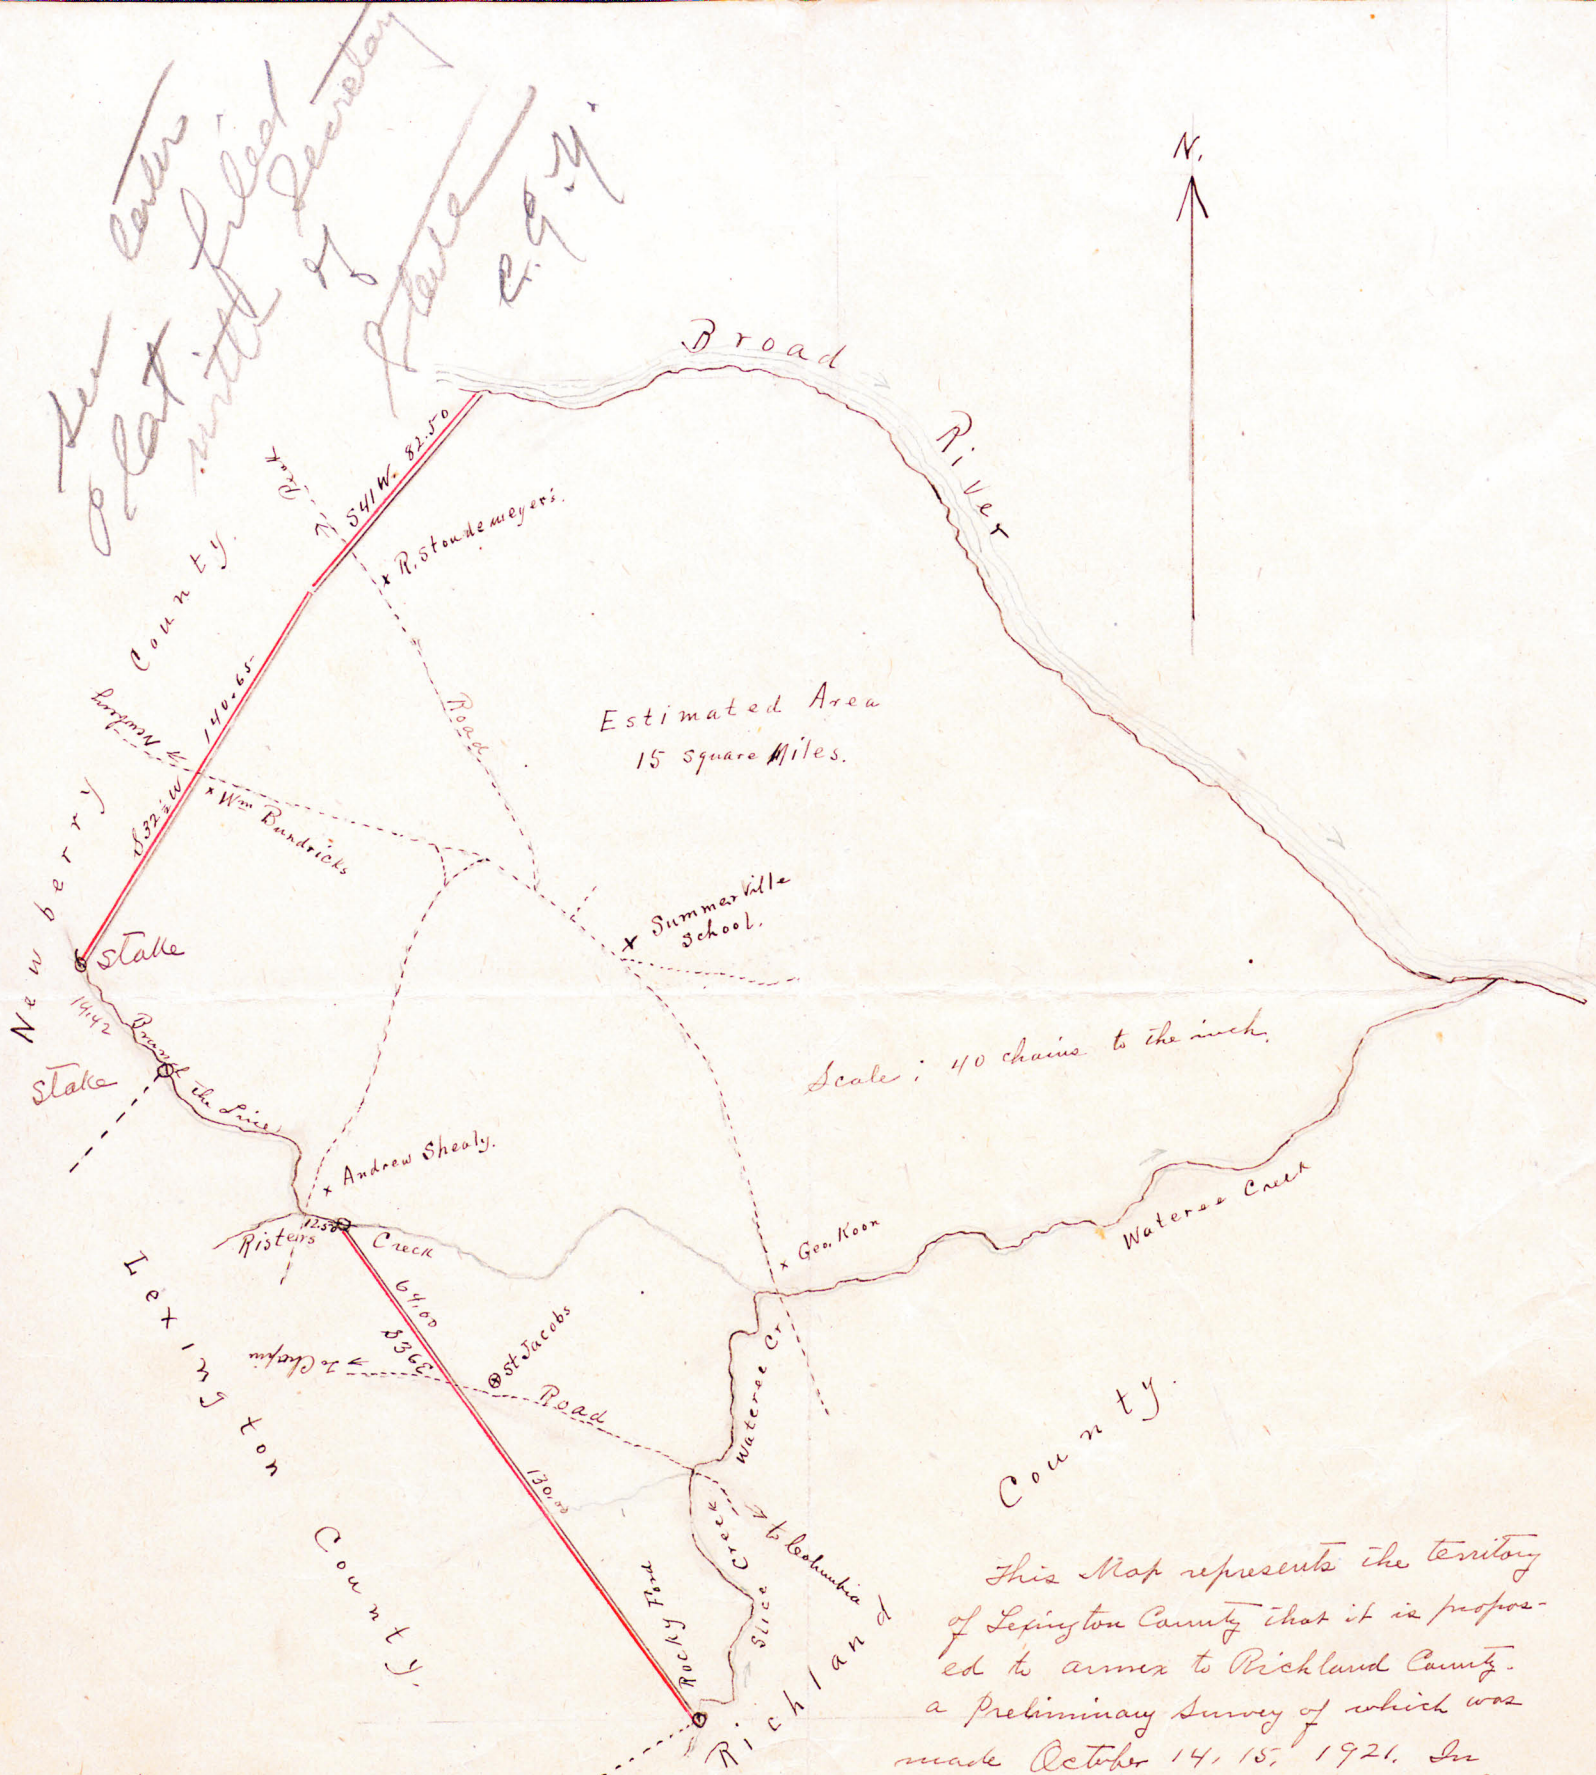 See later
plat filed
with Secretary
of
State
C. G. Y.
N.
Broad
River
S41W. 82.50
Peak
R. Stoudemeyers.
County.
Newberry
140.65
S32½W
Newberry
Road
Wm Bundricks
Estimated Area
15 square Miles.
Summerville
School.
Stake
19.42
Branch the Line
Stake
Scale: 40 chains to the inch.
Andrew Shealy.
Risters 12.50 Creek
Geo. Koon
Wateree Creek
Lexington
County.
64.00
S36E
To Chapin
St Jacobs
Road
Wateree Cr
130.00
Slice Creek
to Columbia
Rocky Ford
Richland
County.
This Map represents the territory
of Lexington County that it is propos-
ed to annex to Richland County.
a Preliminary Survey of which was
made October 14, 15, 1921. In